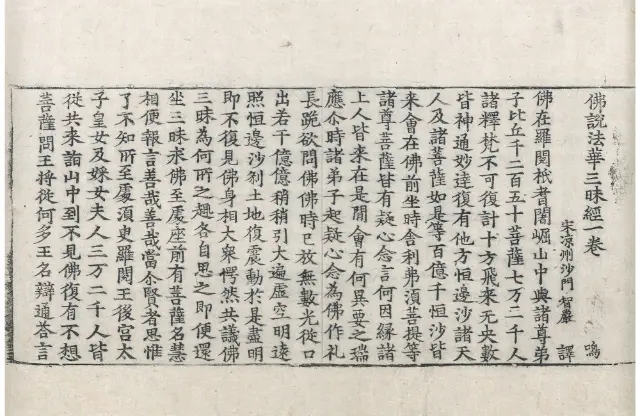 佛說法華三昧經一卷　鳴
宋涼州沙門 智嚴 譯
佛在羅閱祇耆闍崛山中與諸尊弟
子比丘千二百五十菩薩七万二千人
諸釋梵不可復計十方飛來无央數
皆神通妙達復有他方恒邊沙諸天
人及諸菩薩如是等百億千恒沙皆
來會在佛前坐時舍利弗須菩提等
諸尊菩薩皆有疑心念言何因緣諸
上人皆來在是間會有何異要之瑞
應尒時諸弟子起疑心念為佛作礼
長跪欲問佛佛時已放無數光從口
出若干億億稍稍引大遍虛空明遠
照恒邊沙剎土地復震動於是盡明
即不復見佛身相大衆愕然共議佛
三昧為何所之趣各自思之即便還
坐三昧求佛至處座前有菩薩名慧
相便報言善哉善哉當尒賢者思惟
了不知所至處須臾羅閱王後宮太
子皇女及婇女夫人三万二千人皆
從共來詣山中到不見佛復有不想
菩薩問王將從何多王名辯通荅言